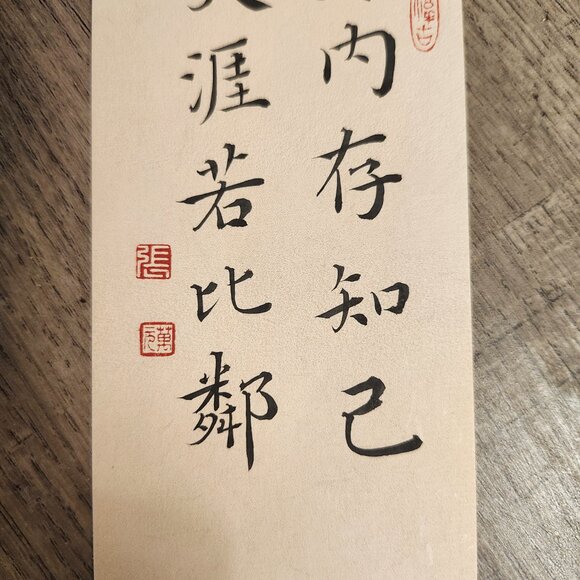 內存知己
天涯若比鄰
張